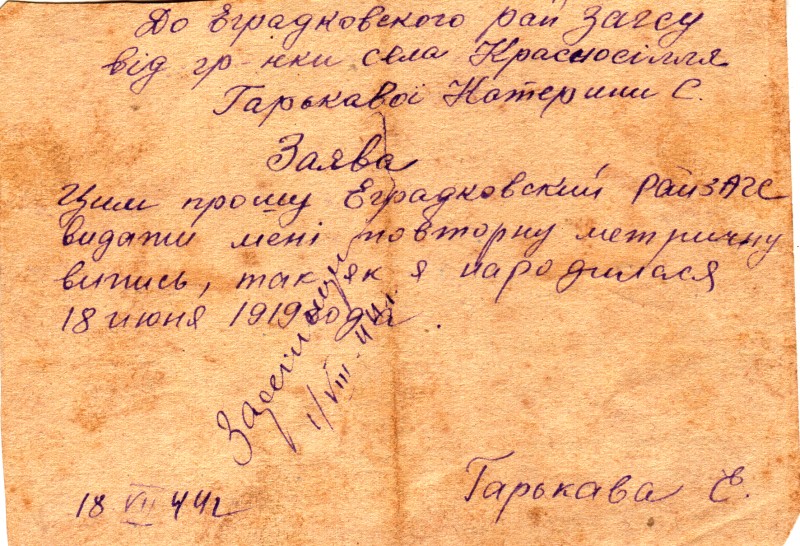 До Еградковского рай Загсу
від гр-нки села Красносілля
Гарькавої Катерини С.
Заява
Цим прошу Еградковский райЗАГС
видати мені повторну метричну
випись, так як я народилася
18 июня 1919 года.
1/VIII-44 г.
18 VII 44 г
Гарькава Е.